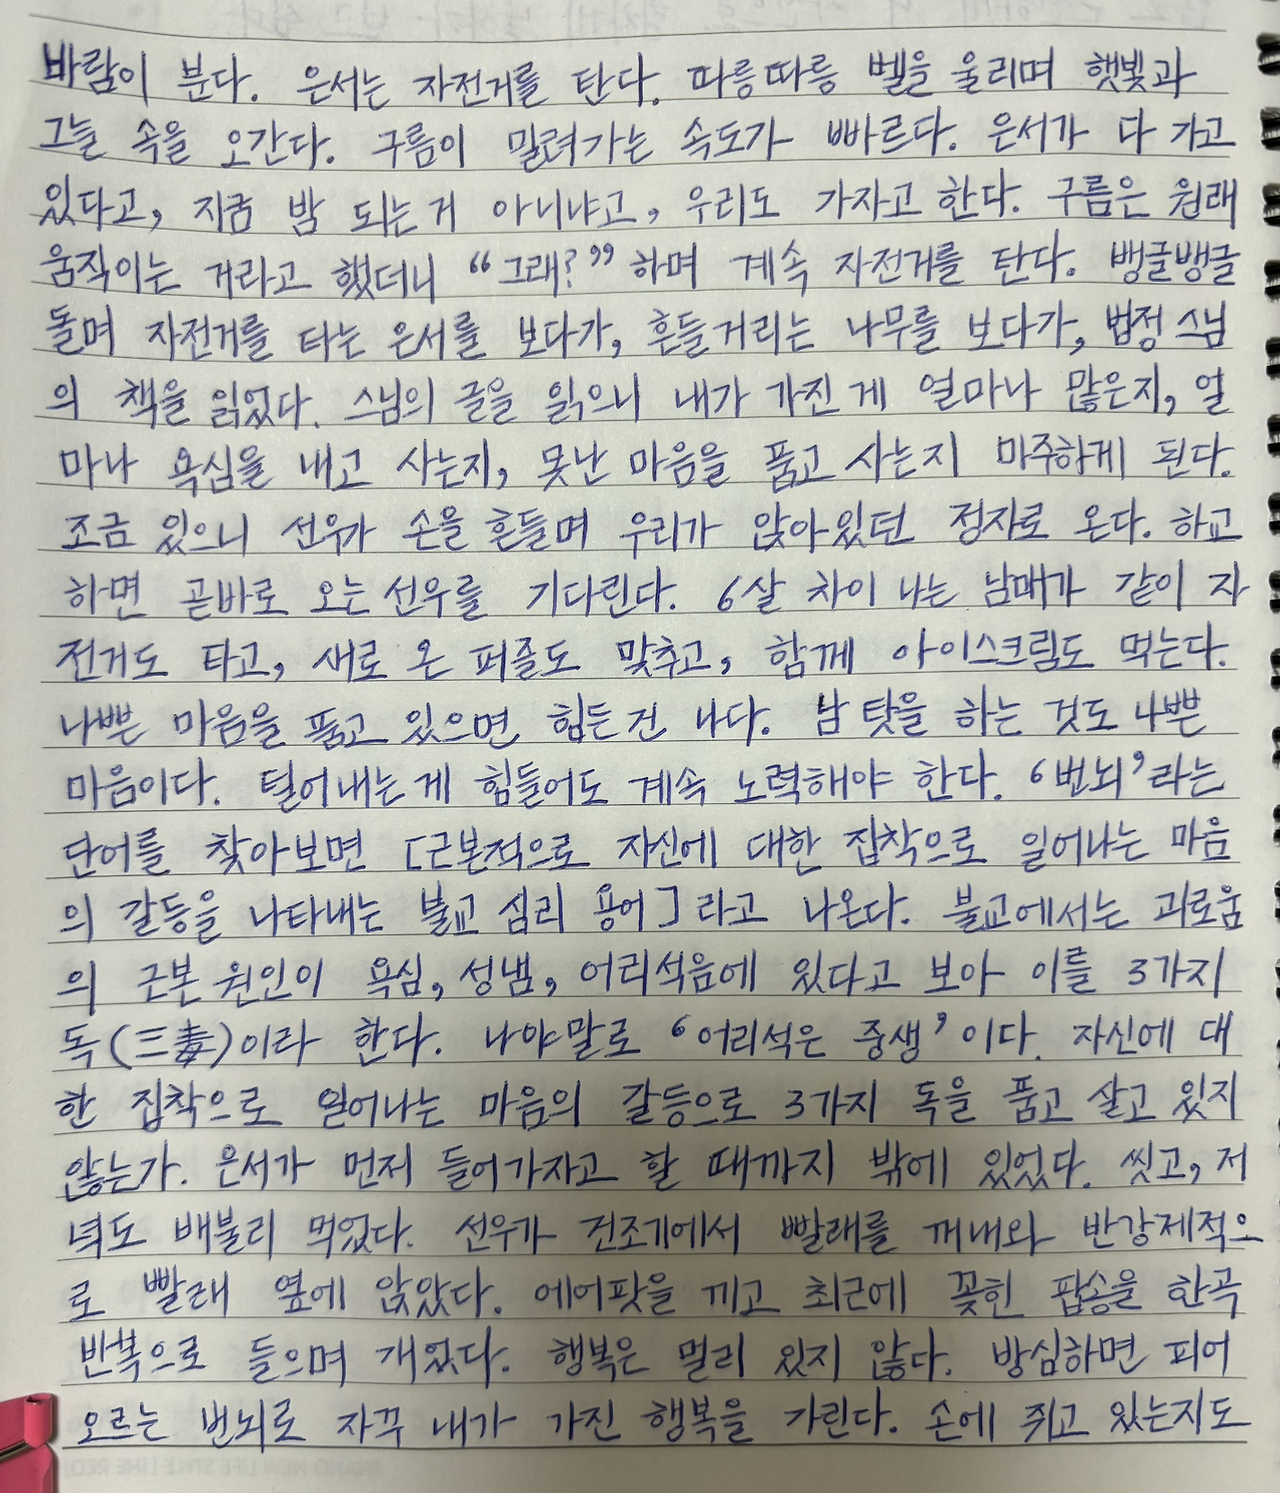 바람이 분다. 은서는 자전거를 탄다. 따릉따릉 벨을 울리며 햇빛과
그늘 속을 오간다. 구름이 밀려가는 속도가 빠르다. 은서가 다 가고
있다고, 지금 밤 되는거 아니냐고, 우리도 가자고 한다. 구름은 원래
움직이는 거라고 했더니 “그래?” 하며 계속 자전거를 탄다. 뱅글뱅글
돌며 자전거를 타는 은서를 보다가, 흔들거리는 나무를 보다가, 법정스님
의 책을 읽었다. 스님의 글을 읽으니 내가 가진게 얼마나 많은지, 얼
마나 욕심을 내고 사는지, 못난 마음을 품고 사는지 마주하게 된다.
조금 있으니 선우가 손을 흔들며 우리가 앉아있던 정자로 온다. 하교
하면 곧바로 오는 선우를 기다린다. 6살 차이 나는 남매가 같이 자
전거도 타고, 새로 온 퍼즐도 맞추고, 함께 아이스크림도 먹는다.
나쁜 마음을 품고 있으면 힘든건 나다. 남 탓을 하는 것도 나쁜
마음이다. 털어내는게 힘들어도 계속 노력해야 한다. ‘번뇌’라는
단어를 찾아보면 [근본적으로 자신에 대한 집착으로 일어나는 마음
의 갈등을 나타내는 불교 심리 용어]라고 나온다. 불교에서는 괴로움
의 근본 원인이 욕심, 성냄, 어리석음에 있다고 보아 이를 3가지
독(三毒)이라 한다. 나야말로 ‘어리석은 중생’이다. 자신에 대
한 집착으로 일어나는 마음의 갈등으로 3가지 독을 품고 살고 있지
않는가. 은서가 먼저 들어가자고 할 때까지 밖에 있었다. 씻고, 저
녁도 배불리 먹었다. 선우가 건조기에서 빨래를 꺼내와 반강제적으
로 빨래 옆에 앉았다. 에어팟을 끼고 최근에 꽂힌 팝송을 한곡
반복으로 들으며 개었다. 행복은 멀리 있지 않다. 방심하면 피어
오르는 번뇌로 자꾸 내가 가진 행복을 가린다. 손에 쥐고 있는지도